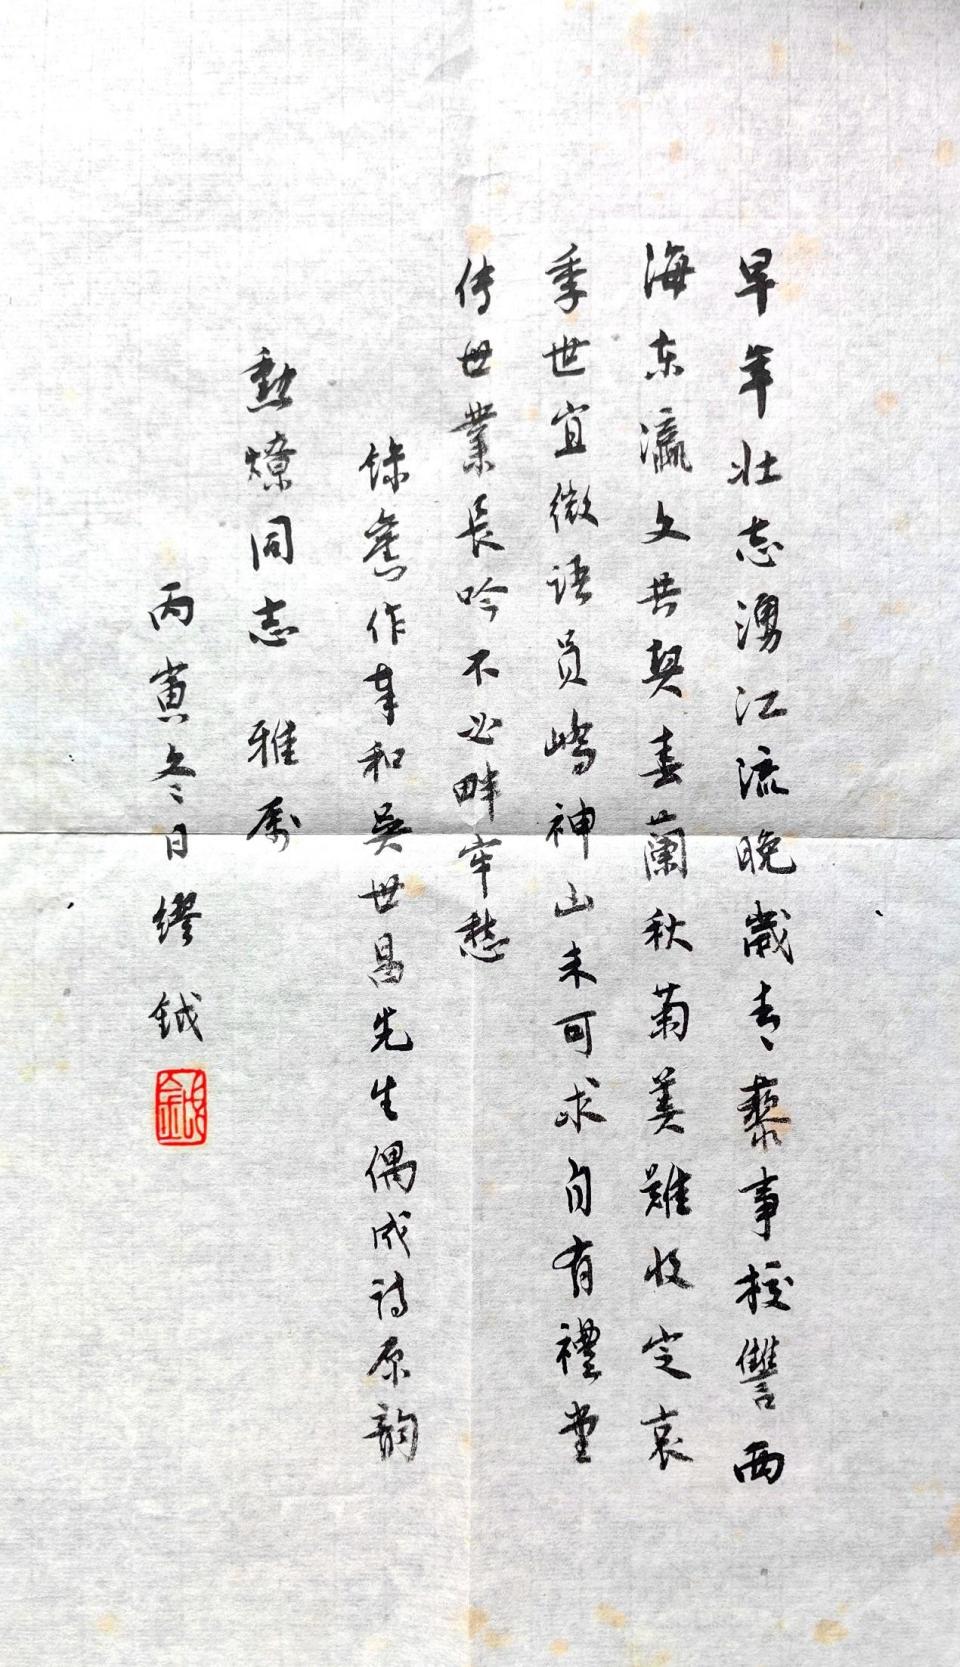 早年壯志湧江流晚歲青藜事校讐西
海東瀛文共契春蘭秋菊美難收定哀
季世宜微語員嶠神山未可求自有禮堂
傳世業長吟不必畔牢愁
録舊作奉和吳世昌先生偶成詩原韵
勲燎同志 雅屬
丙寅冬日繆鉞
鉞